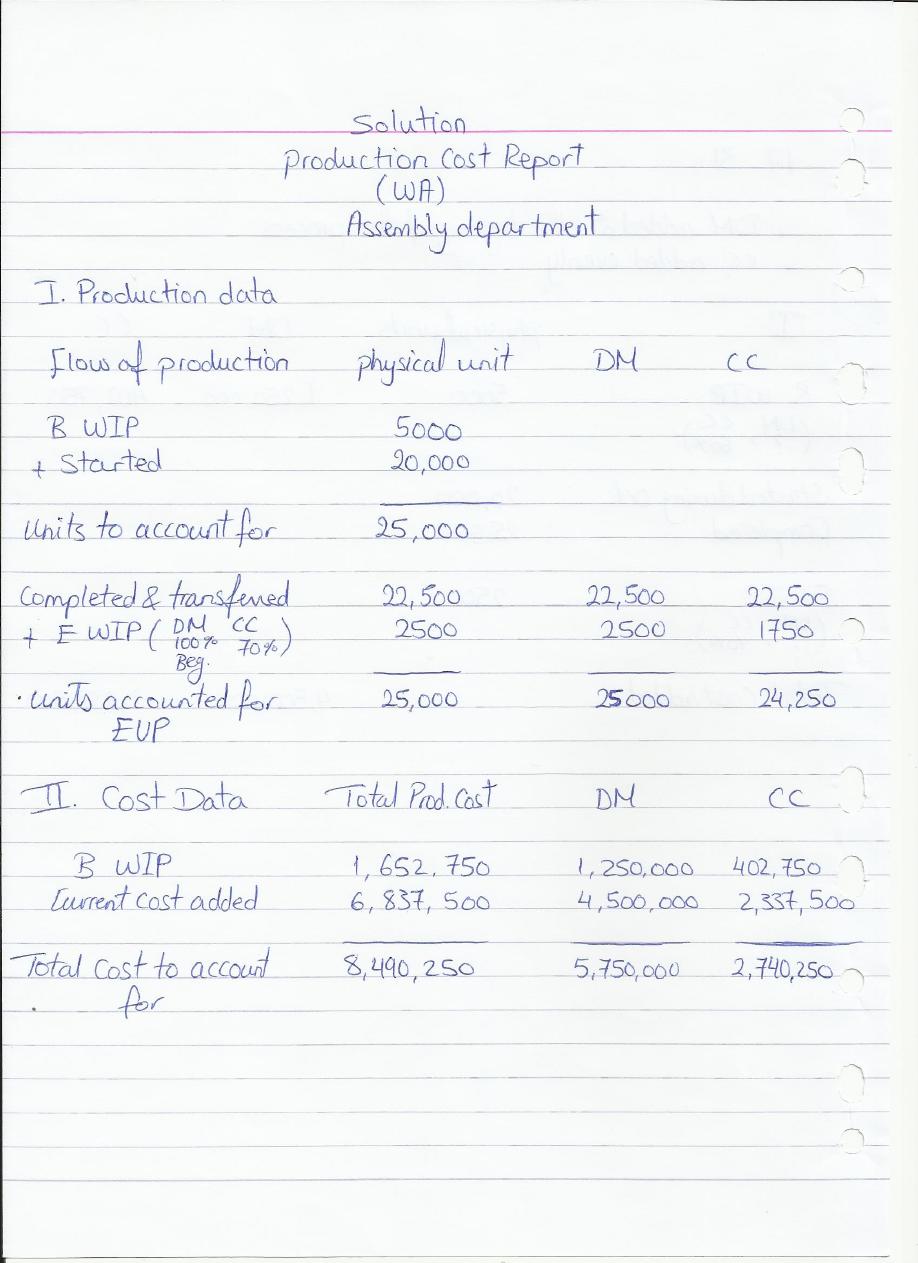 Solution
Production Cost Report
(WA)
Assembly department
I. Production data
Flow of production physical unit DM CC
B WIP 5000
+ Started 20,000
Units to account for 25,000
Completed & transferred 22,500 22,500 22,500
+ E WIP ( DM CC 2500 2500 1750
100% 70% )
Beg.
Units accounted for 25,000 25000 24,250
EUP
II. Cost Data Total Prod. Cost DM CC
B WIP 1,652,750 1,250,000 402,750
Current cost added 6,837,500 4,500,000 2,337,500
Total Cost to account 8,490,250 5,750,000 2,740,250
for